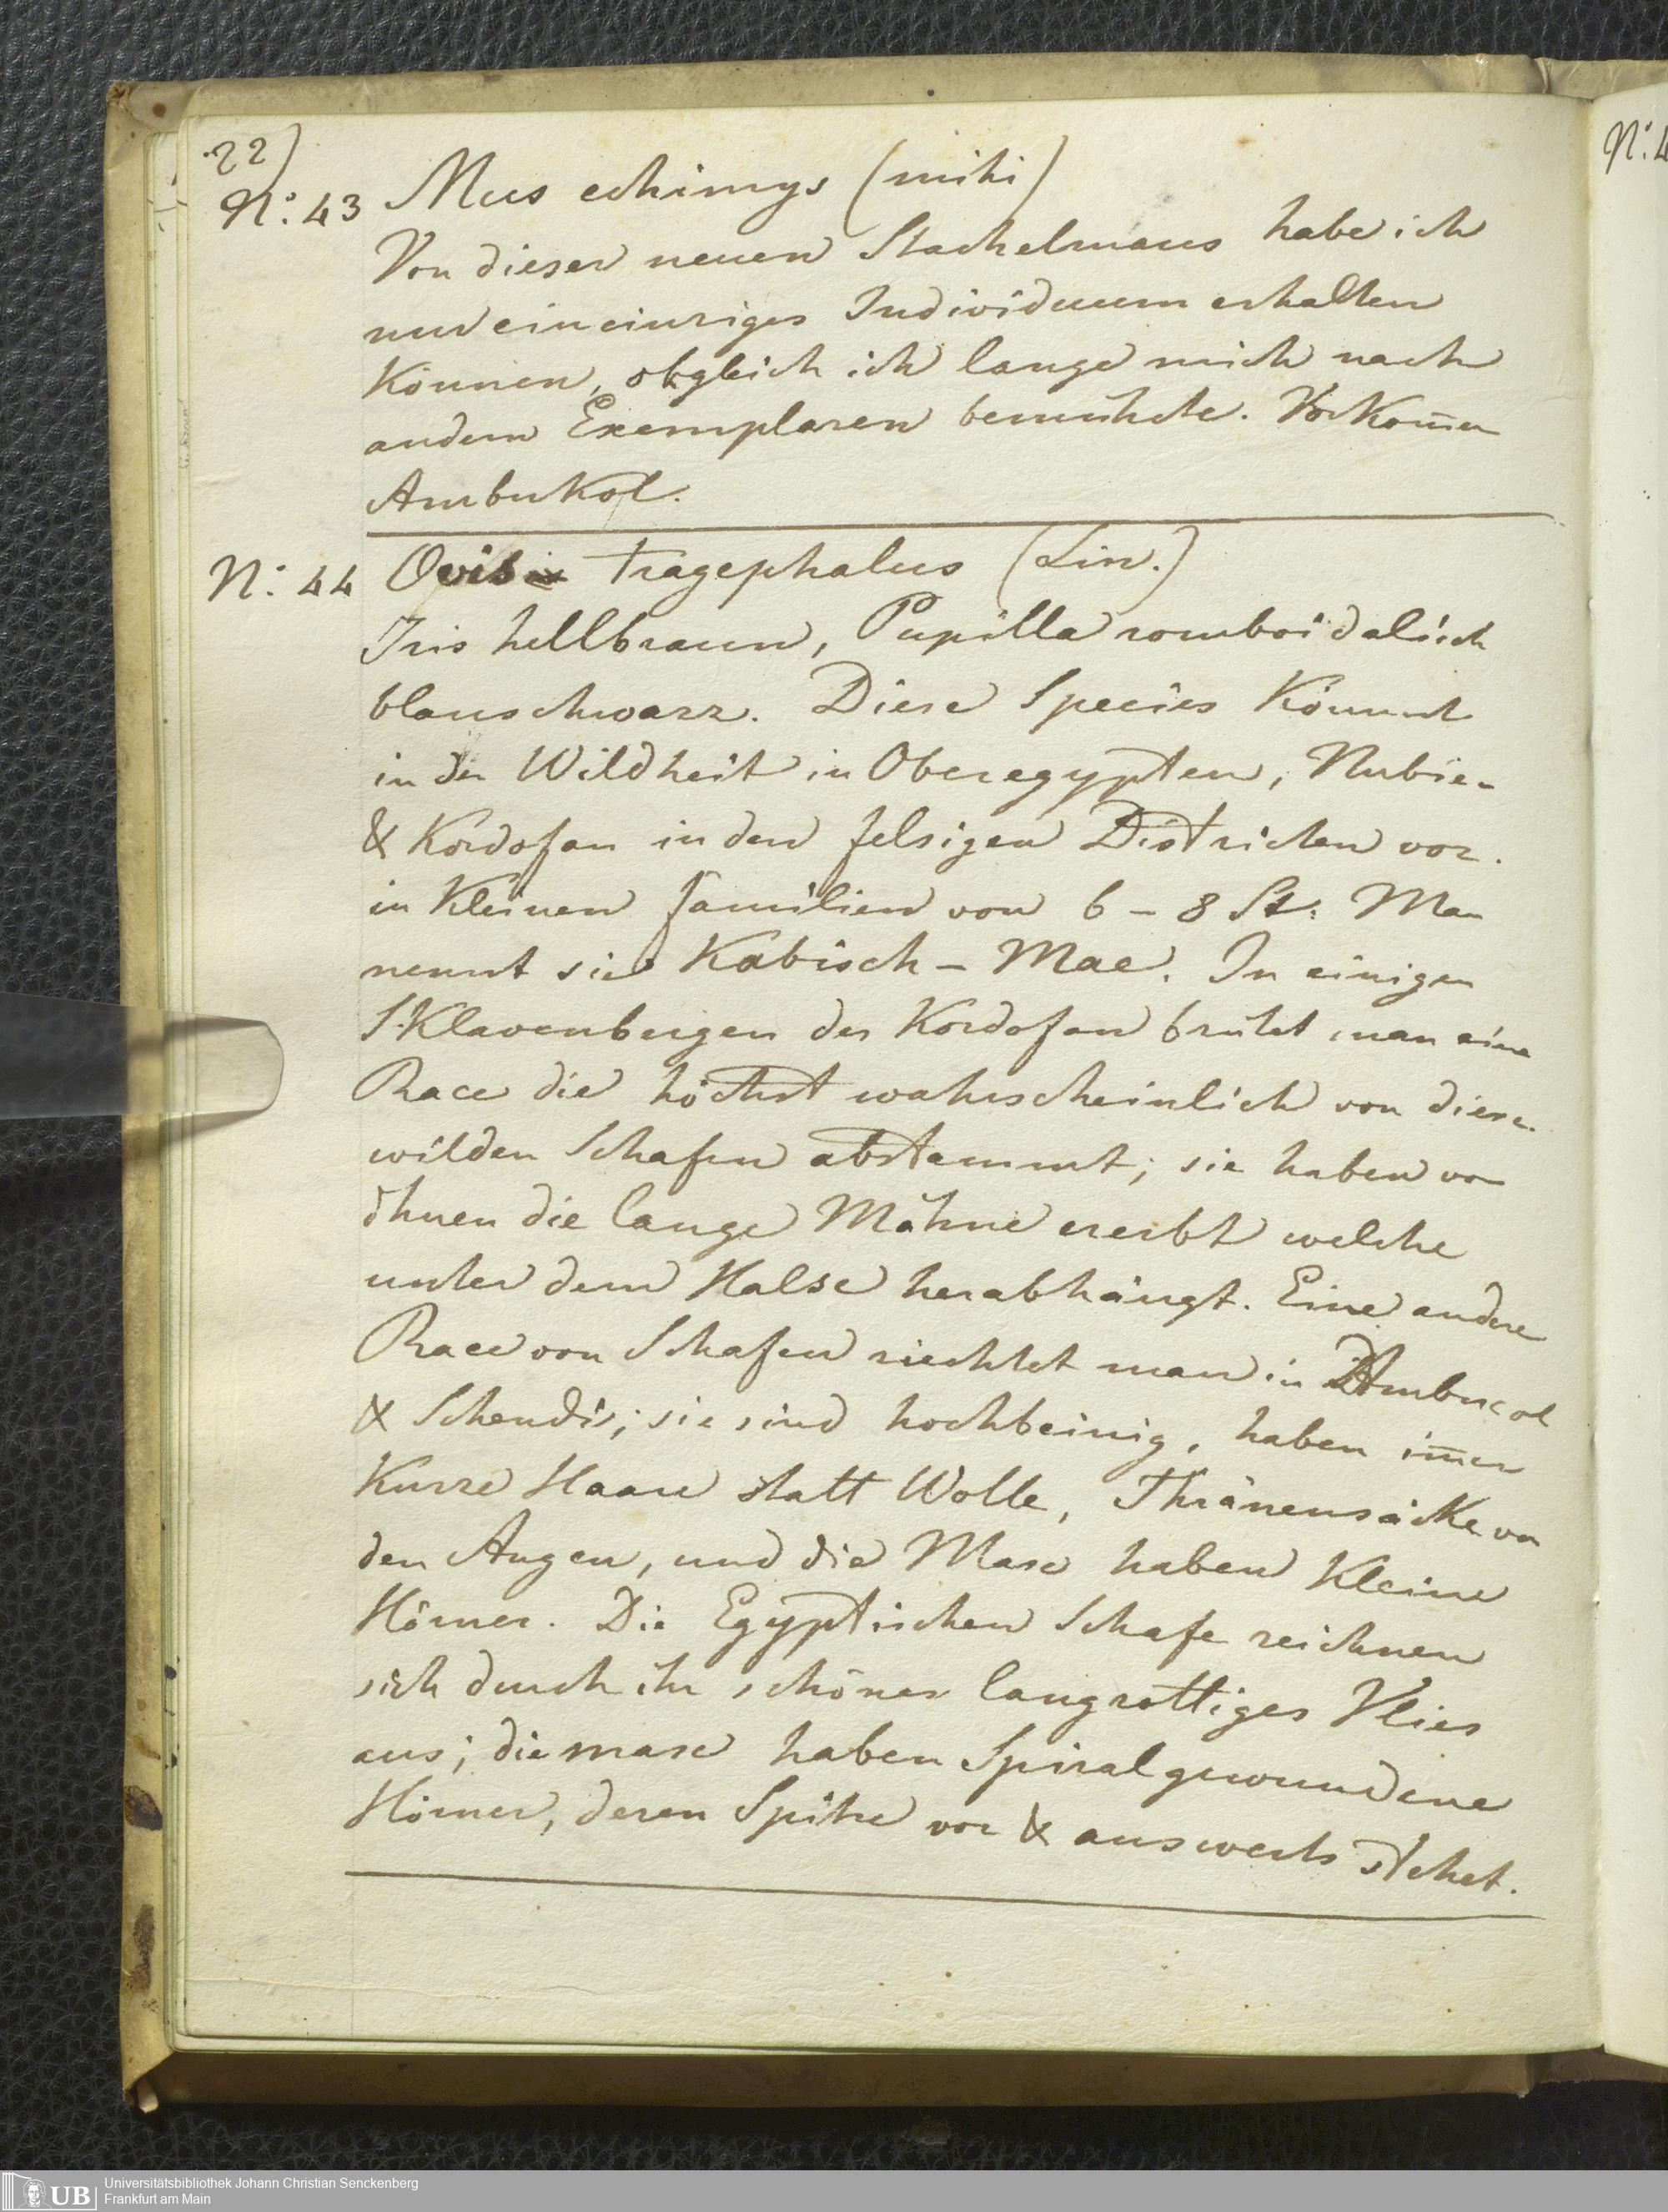 22)
N: 43 Mus echimys (mihi)
Von dieser neuen Stachelmaus habe ich
nur ein einziges Individuum erhalten
Können, obgleich ich lange mich nach
andern Exemplaren bemühete. Vorkom̅en
Ambukol.
N: 44 Ovis tragephalus (Lin.)
Iris hellbraun, Pupilla romboidalisch
blauschwarz. Diese Species Kömmt
in der Wildheit in Oberegypten, Nubien
& Kordofan in den felsigen Districten vor.
in Kleinen familien von 6 – 8 St: Man
nennt sie Kabisch – Mae. In einigen
SKlavenbergen des Kordofan brütet man eine
Race die höchst wahrscheinlich von diesen
wilden Schafen abstammt; sie haben von
ihnen die lange Mähne ererbt welche
unter dem Halse herabhängt. Eine andere
Race von Schafen ziechtet man in Ambucol
& Schendi; sie sind hochbeinig, haben im̅er
Kurze Haare statt Wolle, Thränensäcke vor
den Augen, und die Masc haben Kleine
Hörner. Die Egyptischen Schafe zeichnen
sich durch ihr schönes langzottiges Vlies
aus; die masc haben Spiralgewundene
Hörner, deren Spitze vor & auswerts stehet.
N: 4
UB Universitätsbibliothek Johann Christian Senckenberg
Frankfurt am Main